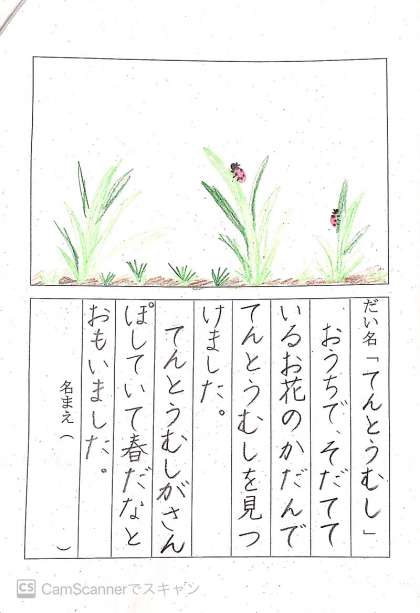 だい名「てんとうむし」
おうちで、そだてて
いるお花のかだんで
てんとうむしを見つ
けました。
てんとうむしがさん
ぽしていて春だなと
おもいました。
名まえ（　　　）
CS CamScannerでスキャン